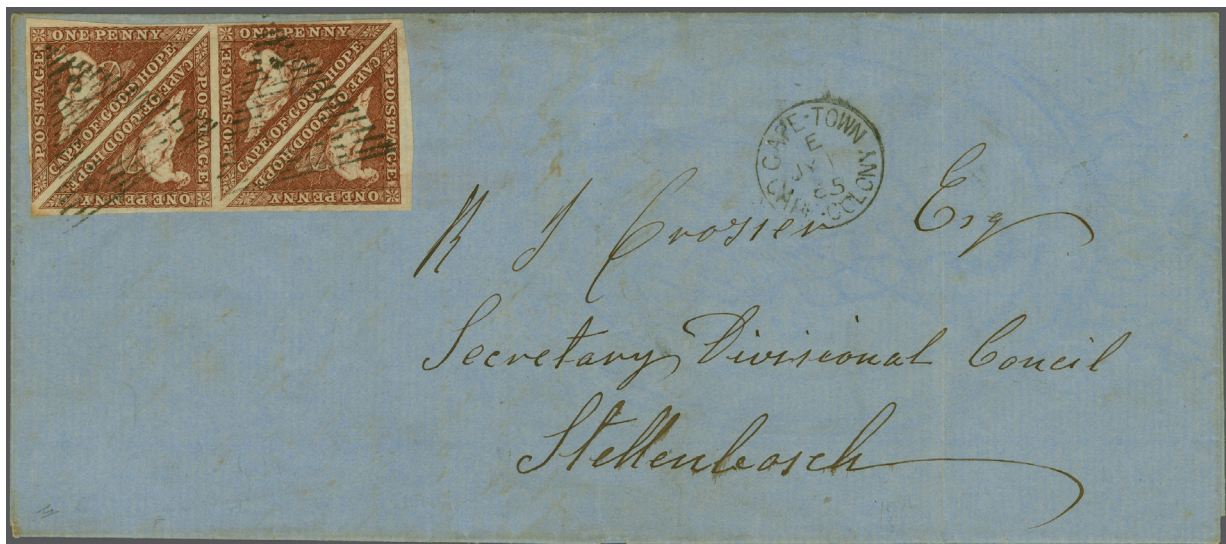 ONE PENNY
POSTAGE
CAPE OF GOOD HOPE
CAPE OF GOOD HOPE
POSTAGE
ONE PENNY
ONE PENNY
POSTAGE
CAPE OF GOOD HOPE
CAPE OF GOOD HOPE
POSTAGE
ONE PENNY
CAPE-TOWN
E
JY 5
COLONY
R J Crosser Esq
Secretary Divisional Concil
Stellenbosch